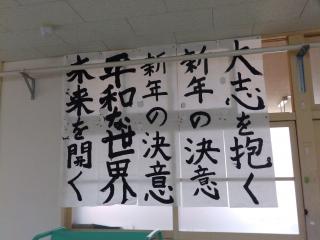 大志を抱く
新年の決意
新年の決意
平和な世界
未来を開く